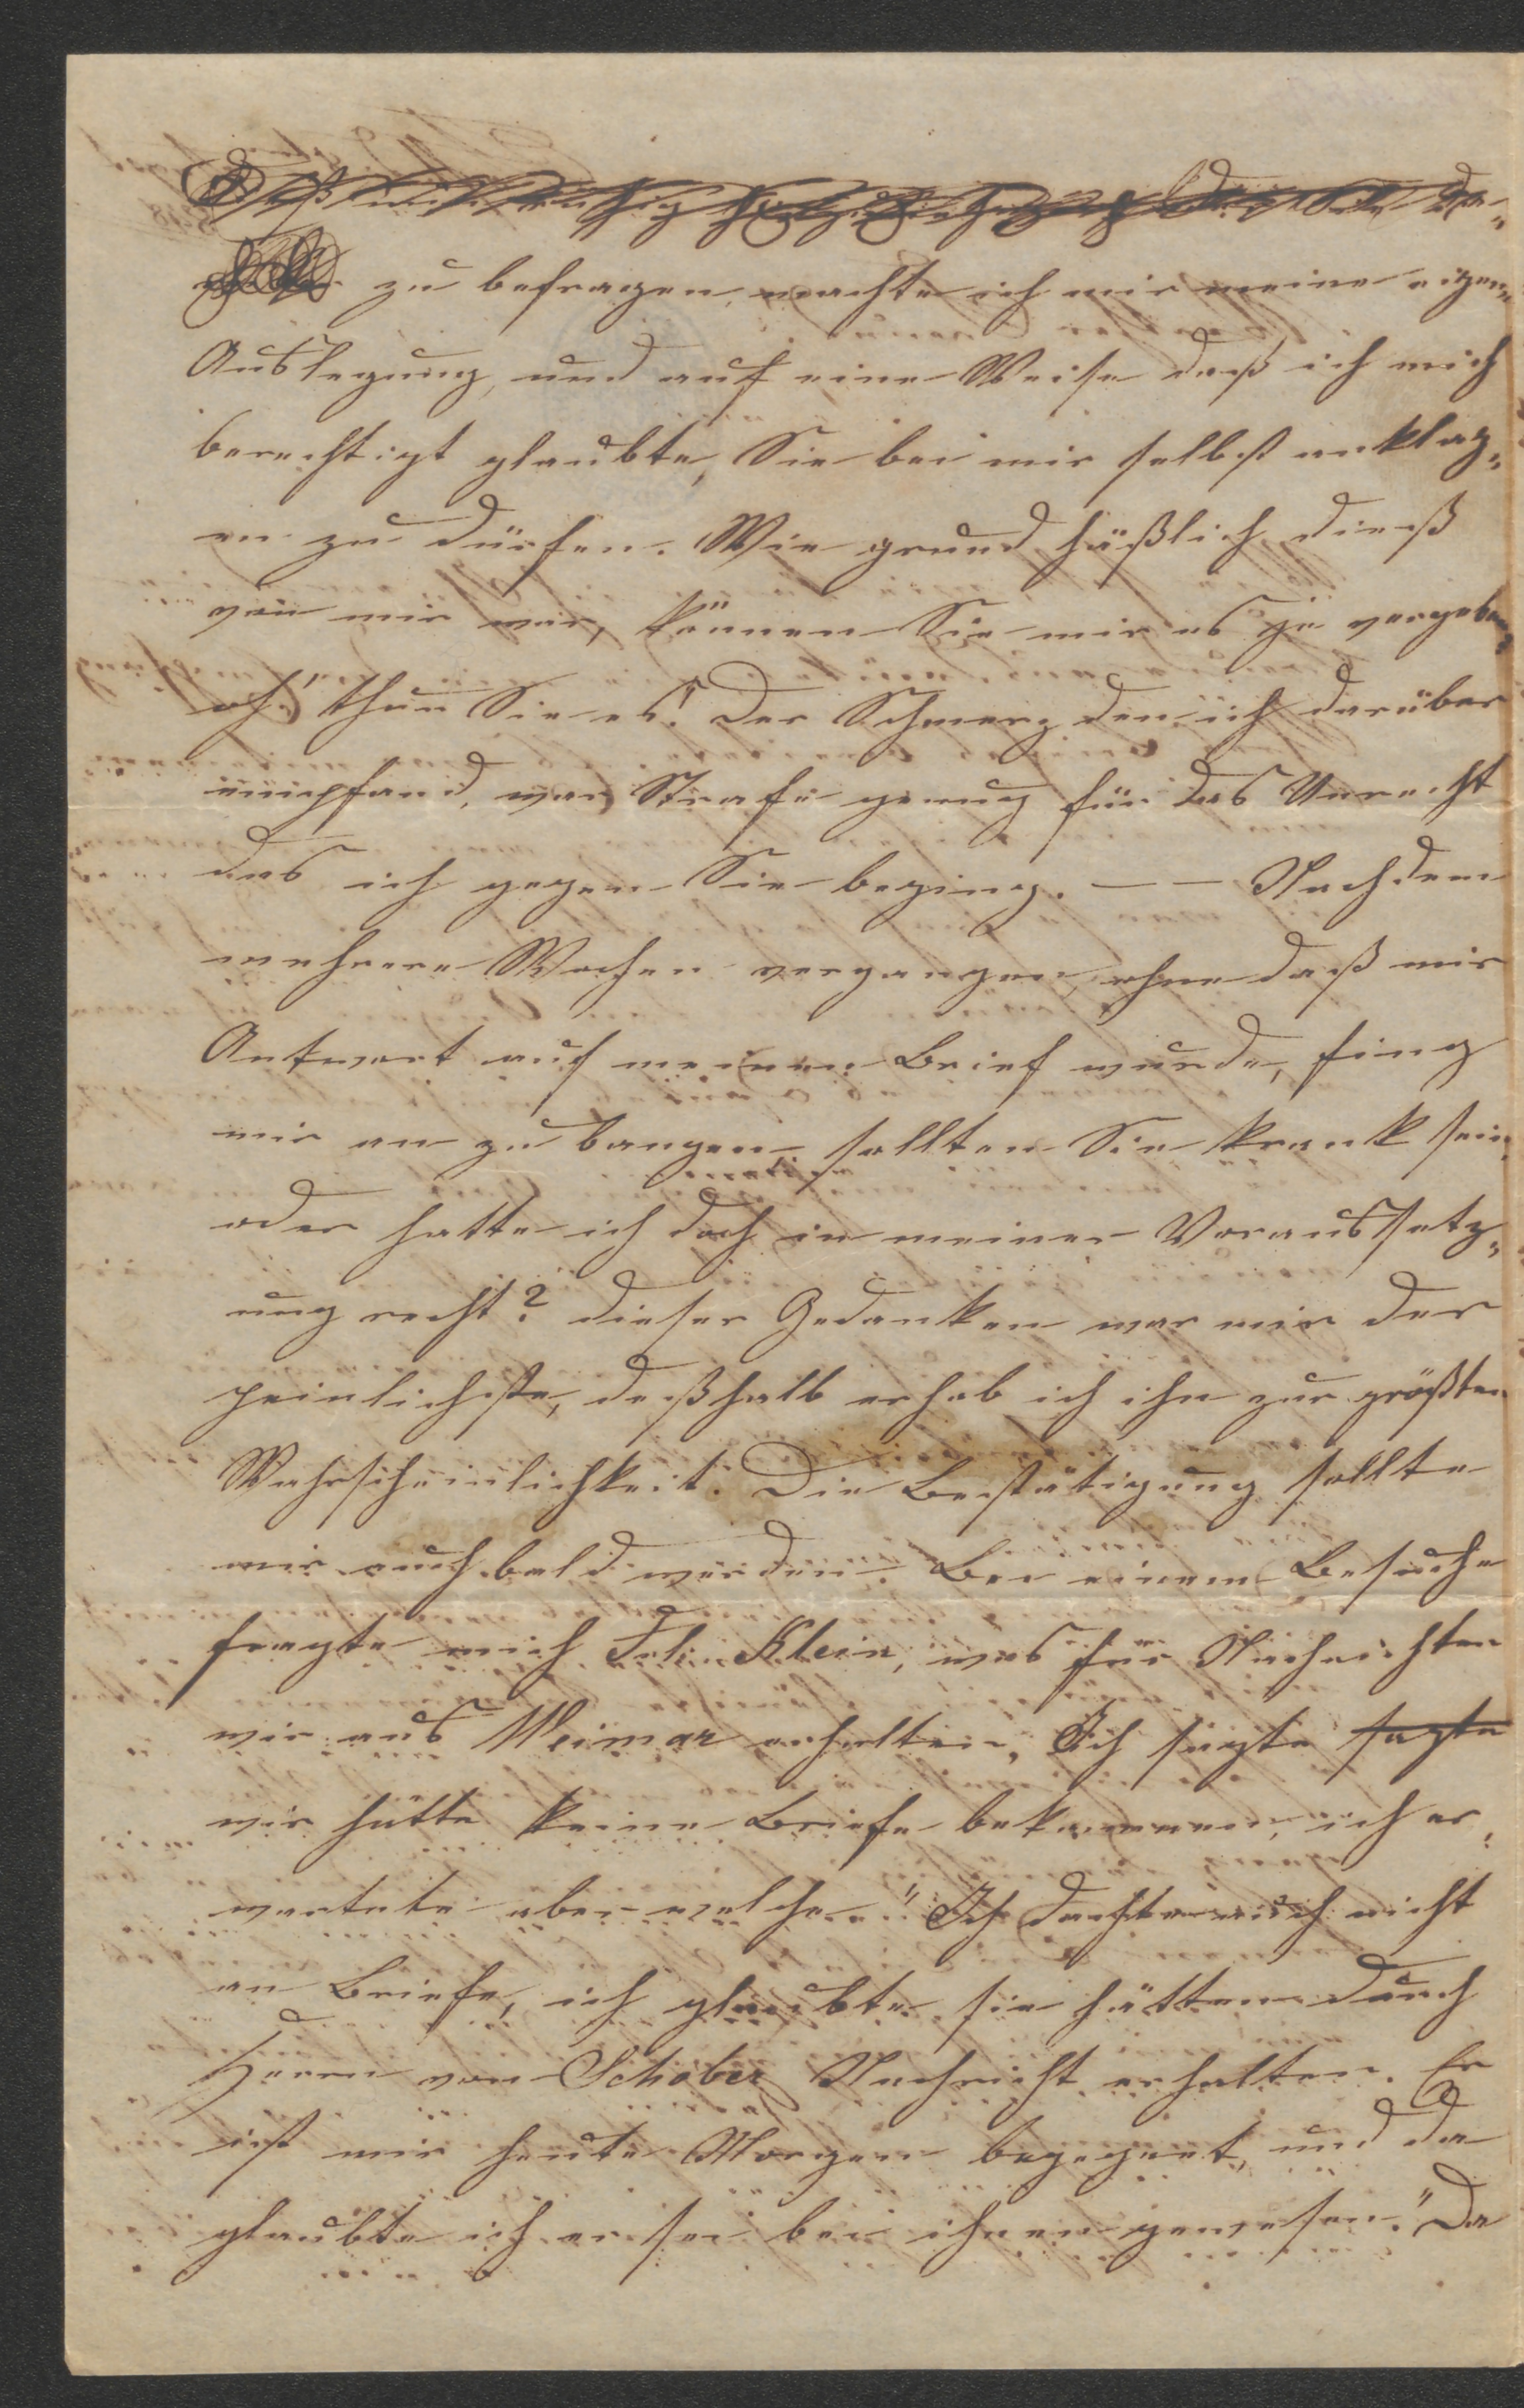 zu befragen, machte ich mir meine eigene
Auslegung, und auf eine Weise daß ich mich
berechtigt glaubte, Sie bei mir selbst anklag„
en zu dürfen. Wie grund häßlich dieß
von mir war, können Sie mir es je vergeben,
oh! thun Sie es! Der Schmerz den ich darüber
empfand, war Strafe genug für das Unrecht
das ich gegen Sie beging. — — Nachdem
mehrere Wochen vergangen, ohne daß mir
Antwort auf meinen Brief wurde, fing
mir an zu bangen, sollten Sie krank sein,
oder hatte ich doch in meiner Voraussetz„
ung recht? dieser Gedanken war mir der
peinlichste, deßhalb erhob ich ihn zur größten
Wahrscheinlichkeit. Die Bestätigung sollte
mir auch bald werden. Bei einem Besuche
fragte mich Frl. Klein, was für Nachrichten
wir aus Weimar erhalten, Ich sagte sagte
wir hätte keine Briefe bekommen, ich er„
wartete aber welche." Ich dachte mich nicht
an Briefe, ich glaubte sie hätten durch
Herrn von Schober Nachricht erhalten. Er
ist mir heute Morgen begegnet, und da
glaubte ich er sei bei ihnen gewesen." Da